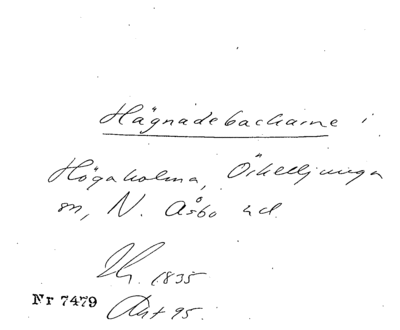 Hägnadebackarne i
Högaholma, Örkelljunga
sn, N. Åsbo hd.
Th. 1835
Nr 7479 Akt 95.